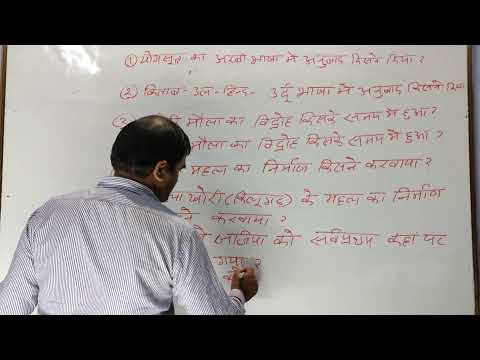 ① योगसूत्र का अरबी भाषा में अनुवाद किसने किया ?
② किताब उल-हिन्द - उर्दू भाषा में अनुवाद किसने किया
③ मौला का विद्रोह किसके समय में हुआ?
मौला का विद्रोह किसके समय में हुआ?
महल का निर्माण किसने करवाया ?
खोरी (किलूगढ़) के महल का निर्माण
ने करवाया ?
जजिया को सर्वप्रथम कहां पर
गया ?